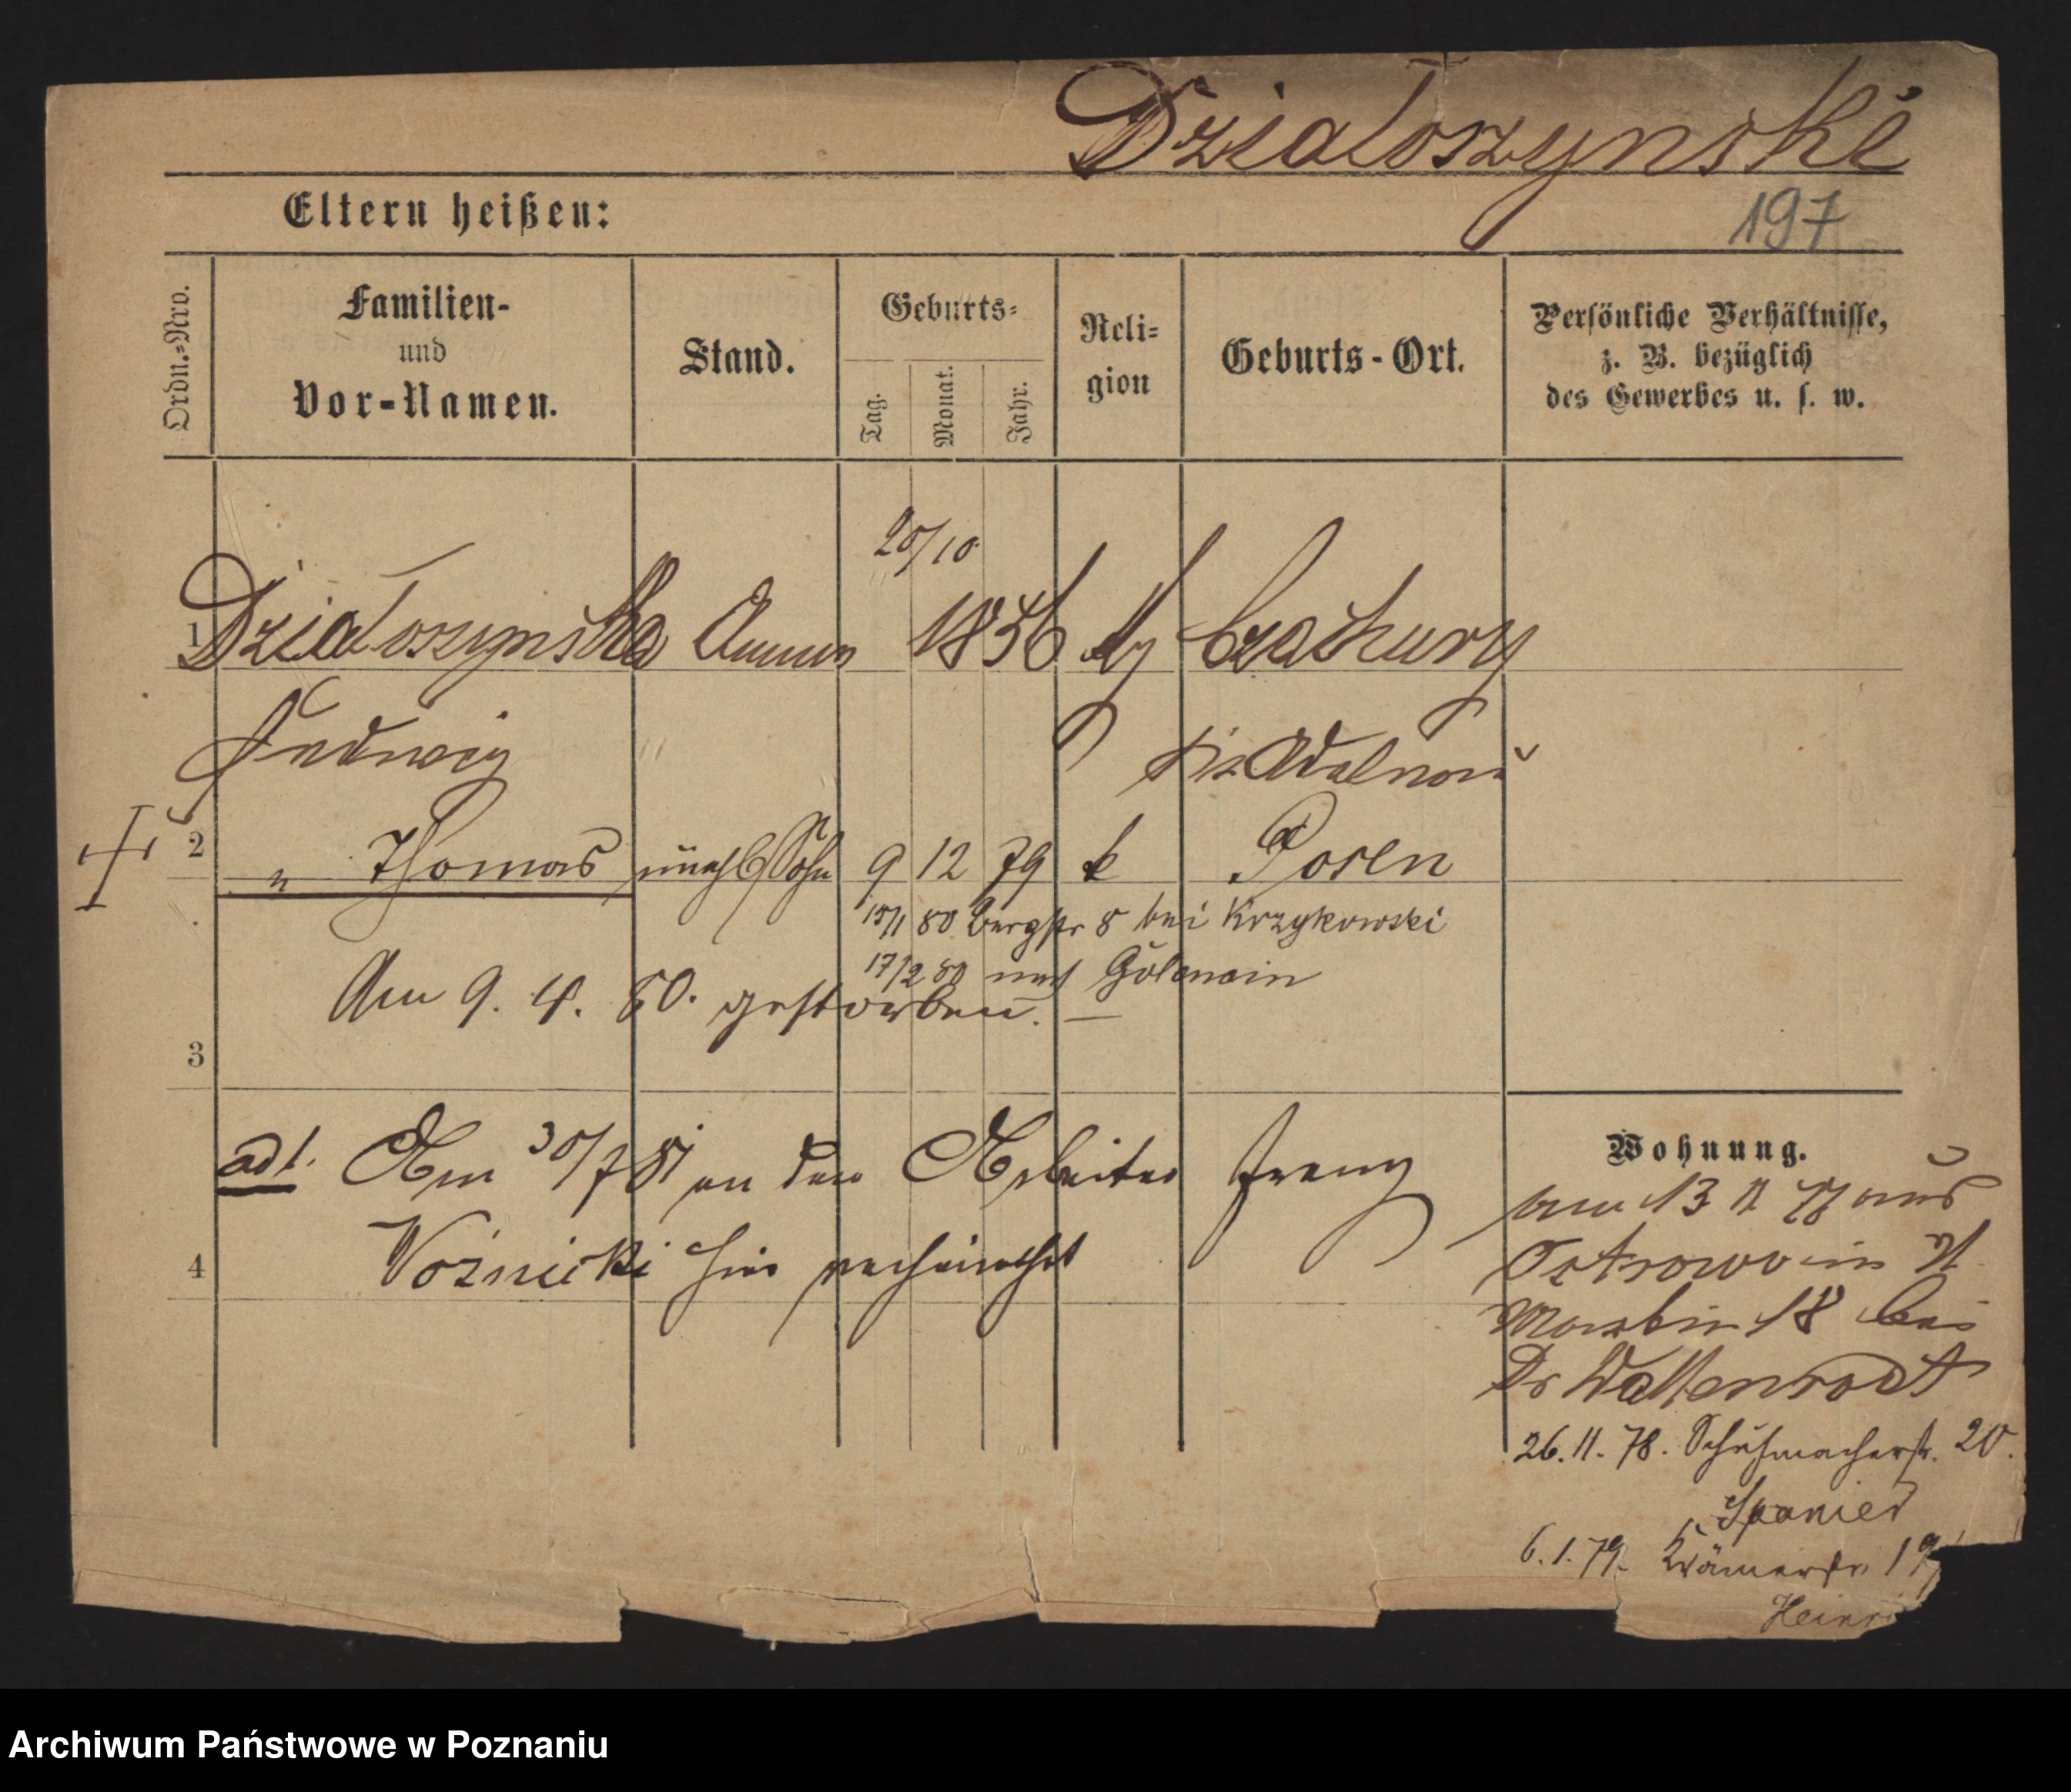 Działoszynski
Eltern heißen:
197
Ordn.-Nro.
Familien-
und
Vor-Namen.
Stand.
Geburts-
Tag.
Monat.
Jahr.
Reli-
gion
Geburts-Ort.
Persönliche Verhältnisse,
z. B. bezüglich
des Gewerbes u. s. w.
20/10
1 Działoszynska Amme 1856 Czachury
Hedwig Kr. Adelnau
2 " Thomas unehl Sohn 9 12 79 k Posen
15/1 80 Bergstr 8 bei Krzykowski
17/2 80 nach
Am 9. 4. 80. gestorben. —
3
ad 1. Am 30/7 81 an den Arbeiter Franz
4 Woźnicki hier verheirathet
Wohnung.
am 13 11 77 aus
Ostrowo in St
Martin 18 bei
Dr Wallenrodt
26.11.78. Schuhmacherstr. 20.
Spanier
6.1.79. Krämerstr. 19
Heinr
Archiwum Państwowe w Poznaniu